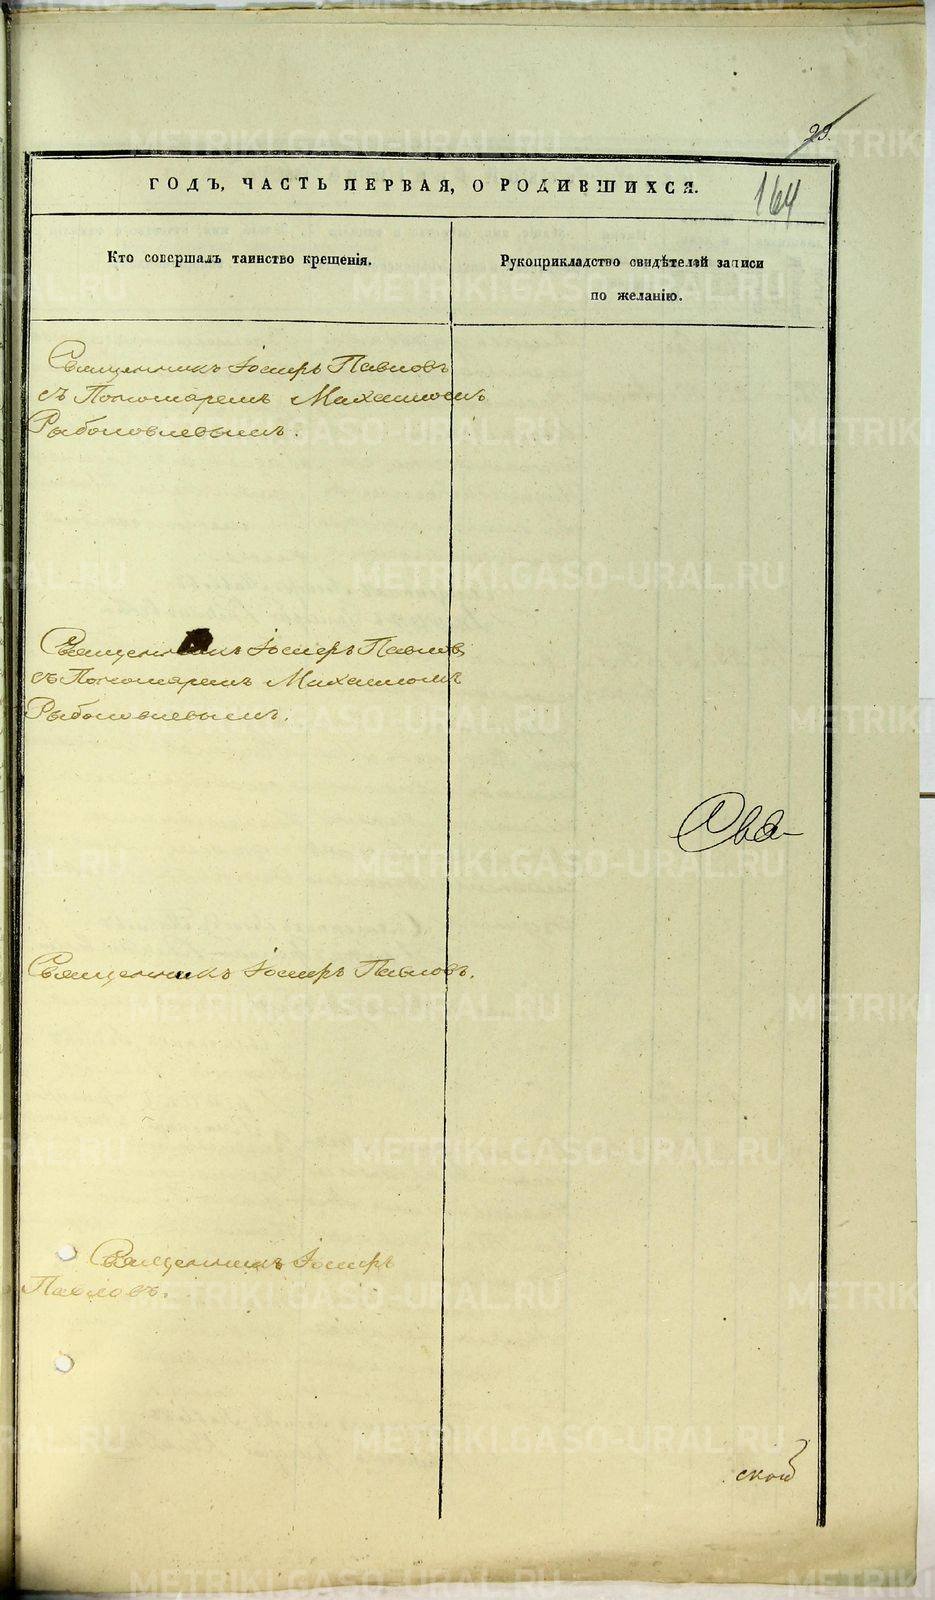 23.
164
ГОДЪ, ЧАСТЬ ПЕРВАЯ, О РОДИВШИХСЯ.
Кто совершалъ таинство крещенія.
Рукоприкладство свидѣтелей записи
по желанію.
Священникъ Іосифъ Павловъ
съ Пономаремъ Михаиломъ
Рыболовлевымъ.
Священникъ Іосифъ Павловъ
съ Пономаремъ Михаиломъ
Рыболовлевымъ.
Священникъ Іосифъ Павловъ.
Священникъ Іосифъ
Павловъ.
ской
METRIKI.GASO-URAL.RU